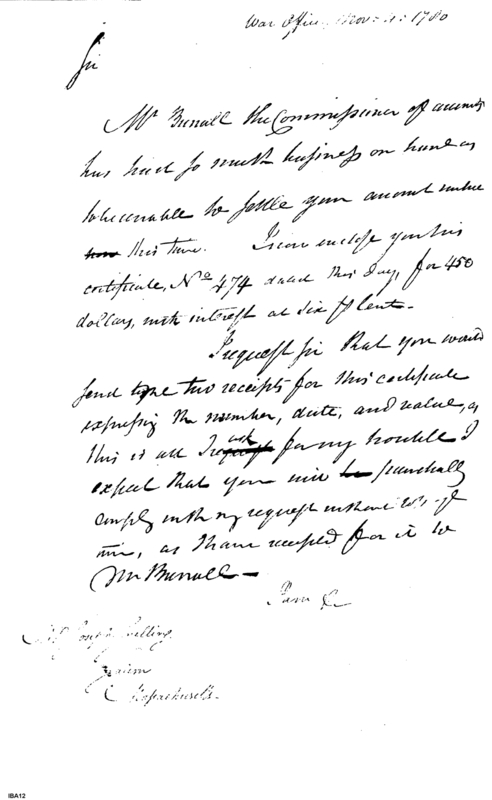 War Office, Nov. 4: 1780
Sir
Mr Burrall the Commissioner of accounts
has had so much business on hand as
to be unable to settle your account untill
now this time. I now enclose you his
certificate, No 474 dated this day, for 450
dollars, with interest at six p Cent.
I request sir that you would
send me two receipts for this certificate
expressing the number, date, and value, as
this is all I request ask for my trouble I
expect that you will be punctually
comply with my request without loss of
time, as I have receipted for it to
Mr Burrall—
I am &c
Mr Joseph
Salem
Massachusetts.
IBA12